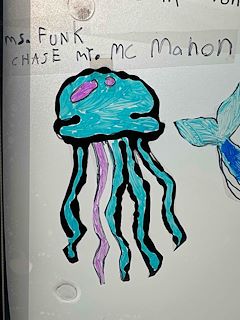 ms. FUNK
CHASE Mr. MC Mahon